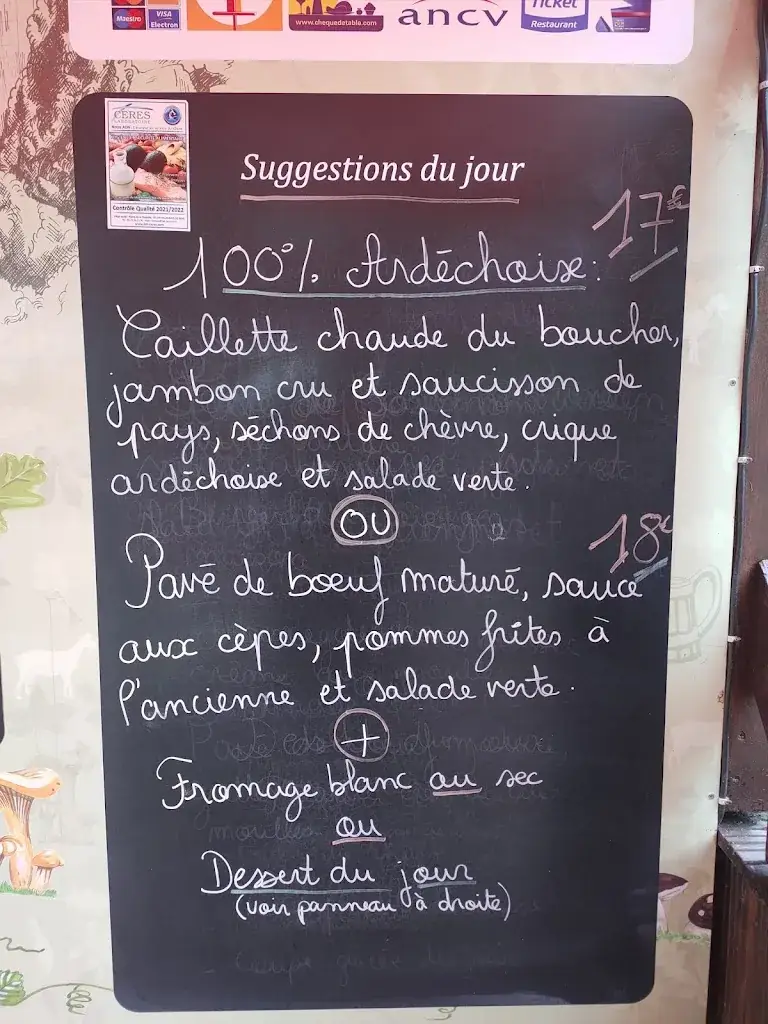 Maestro
VISA
Electron
www.chequedetable.com
ancv
Ticket
Restaurant
CERES
Contrôle Qualité 2021/2022
Suggestions du jour
17€
100% Ardéchoise:
Caillette chaude du boucher,
jambon cru et saucisson de
pays, séchons de chèvre, crique
ardéchoise et salade verte.
OU
18€
Pavé de boeuf maturé, sauce
aux cèpes, pommes frites à
l'ancienne et salade verte.
+
Fromage blanc ou sec
ou
Dessert du jour
(voir panneau à droite)